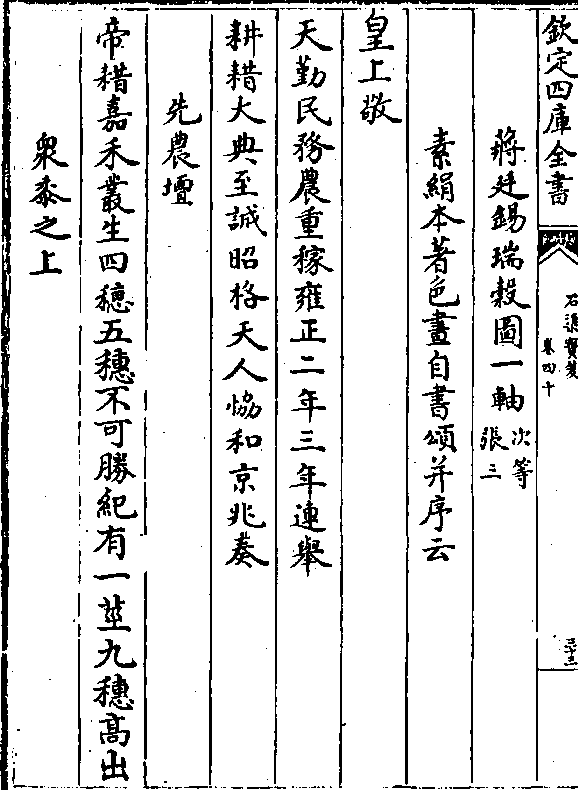 欽定四庫全書
石渠寶笈
卷四十
三十三
蔣廷錫瑞穀圖一軸 次等張三
素絹本著色畫自書頌并序云
皇上敬
天勤民務農重稼雍正二年三年連舉
耕耤大典至誠昭格天人恊和京兆奏
先農壇
帝耤嘉禾叢生四穗五穗不可勝紀有一莖九穗高出
衆黍之上